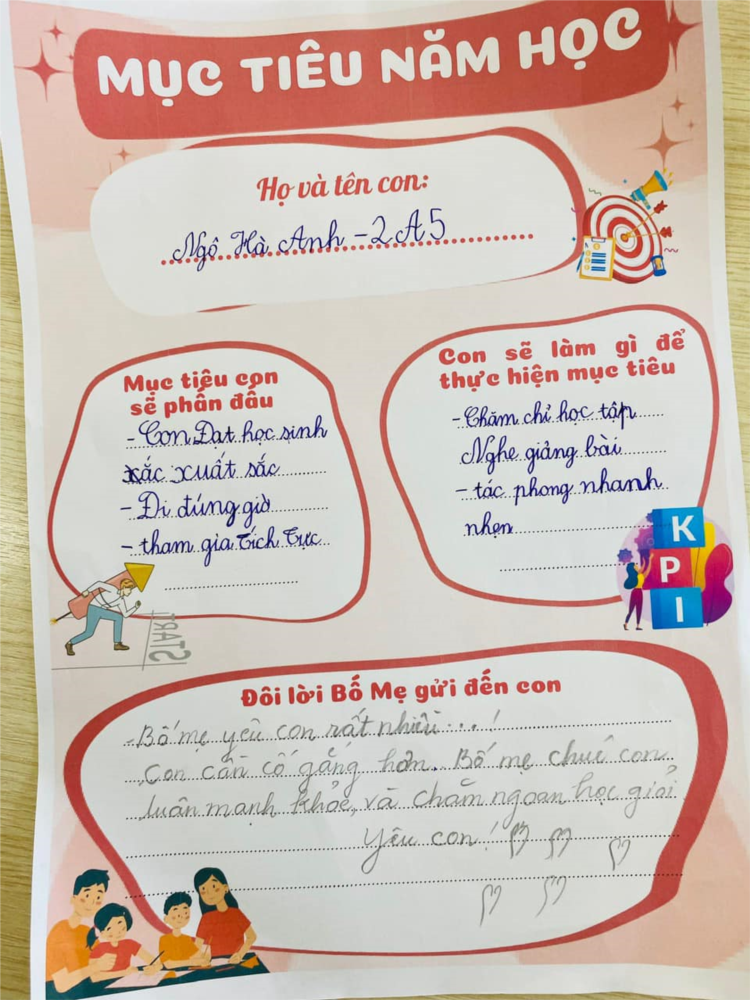 MỤC TIÊU NĂM HỌC
Họ và tên con:
Ngô Hà Anh - 2A5
Mục tiêu con
sẽ phấn đấu
- Con Đạt học sinh
xắc xuất sắc
- Đi đúng giờ
- tham gia tích cực
Con sẽ làm gì để
thực hiện mục tiêu
- Chăm chỉ học tập
Nghe giảng bài
- tác phong nhanh
nhẹn
K
P
I
START
Đôi lời Bố Mẹ gửi đến con
- Bố mẹ yêu con rất nhiều...!
Con cần cố gắng hơn. Bố mẹ chúc con
luôn mạnh khỏe, và chăm ngoan học giỏi
Yêu con!